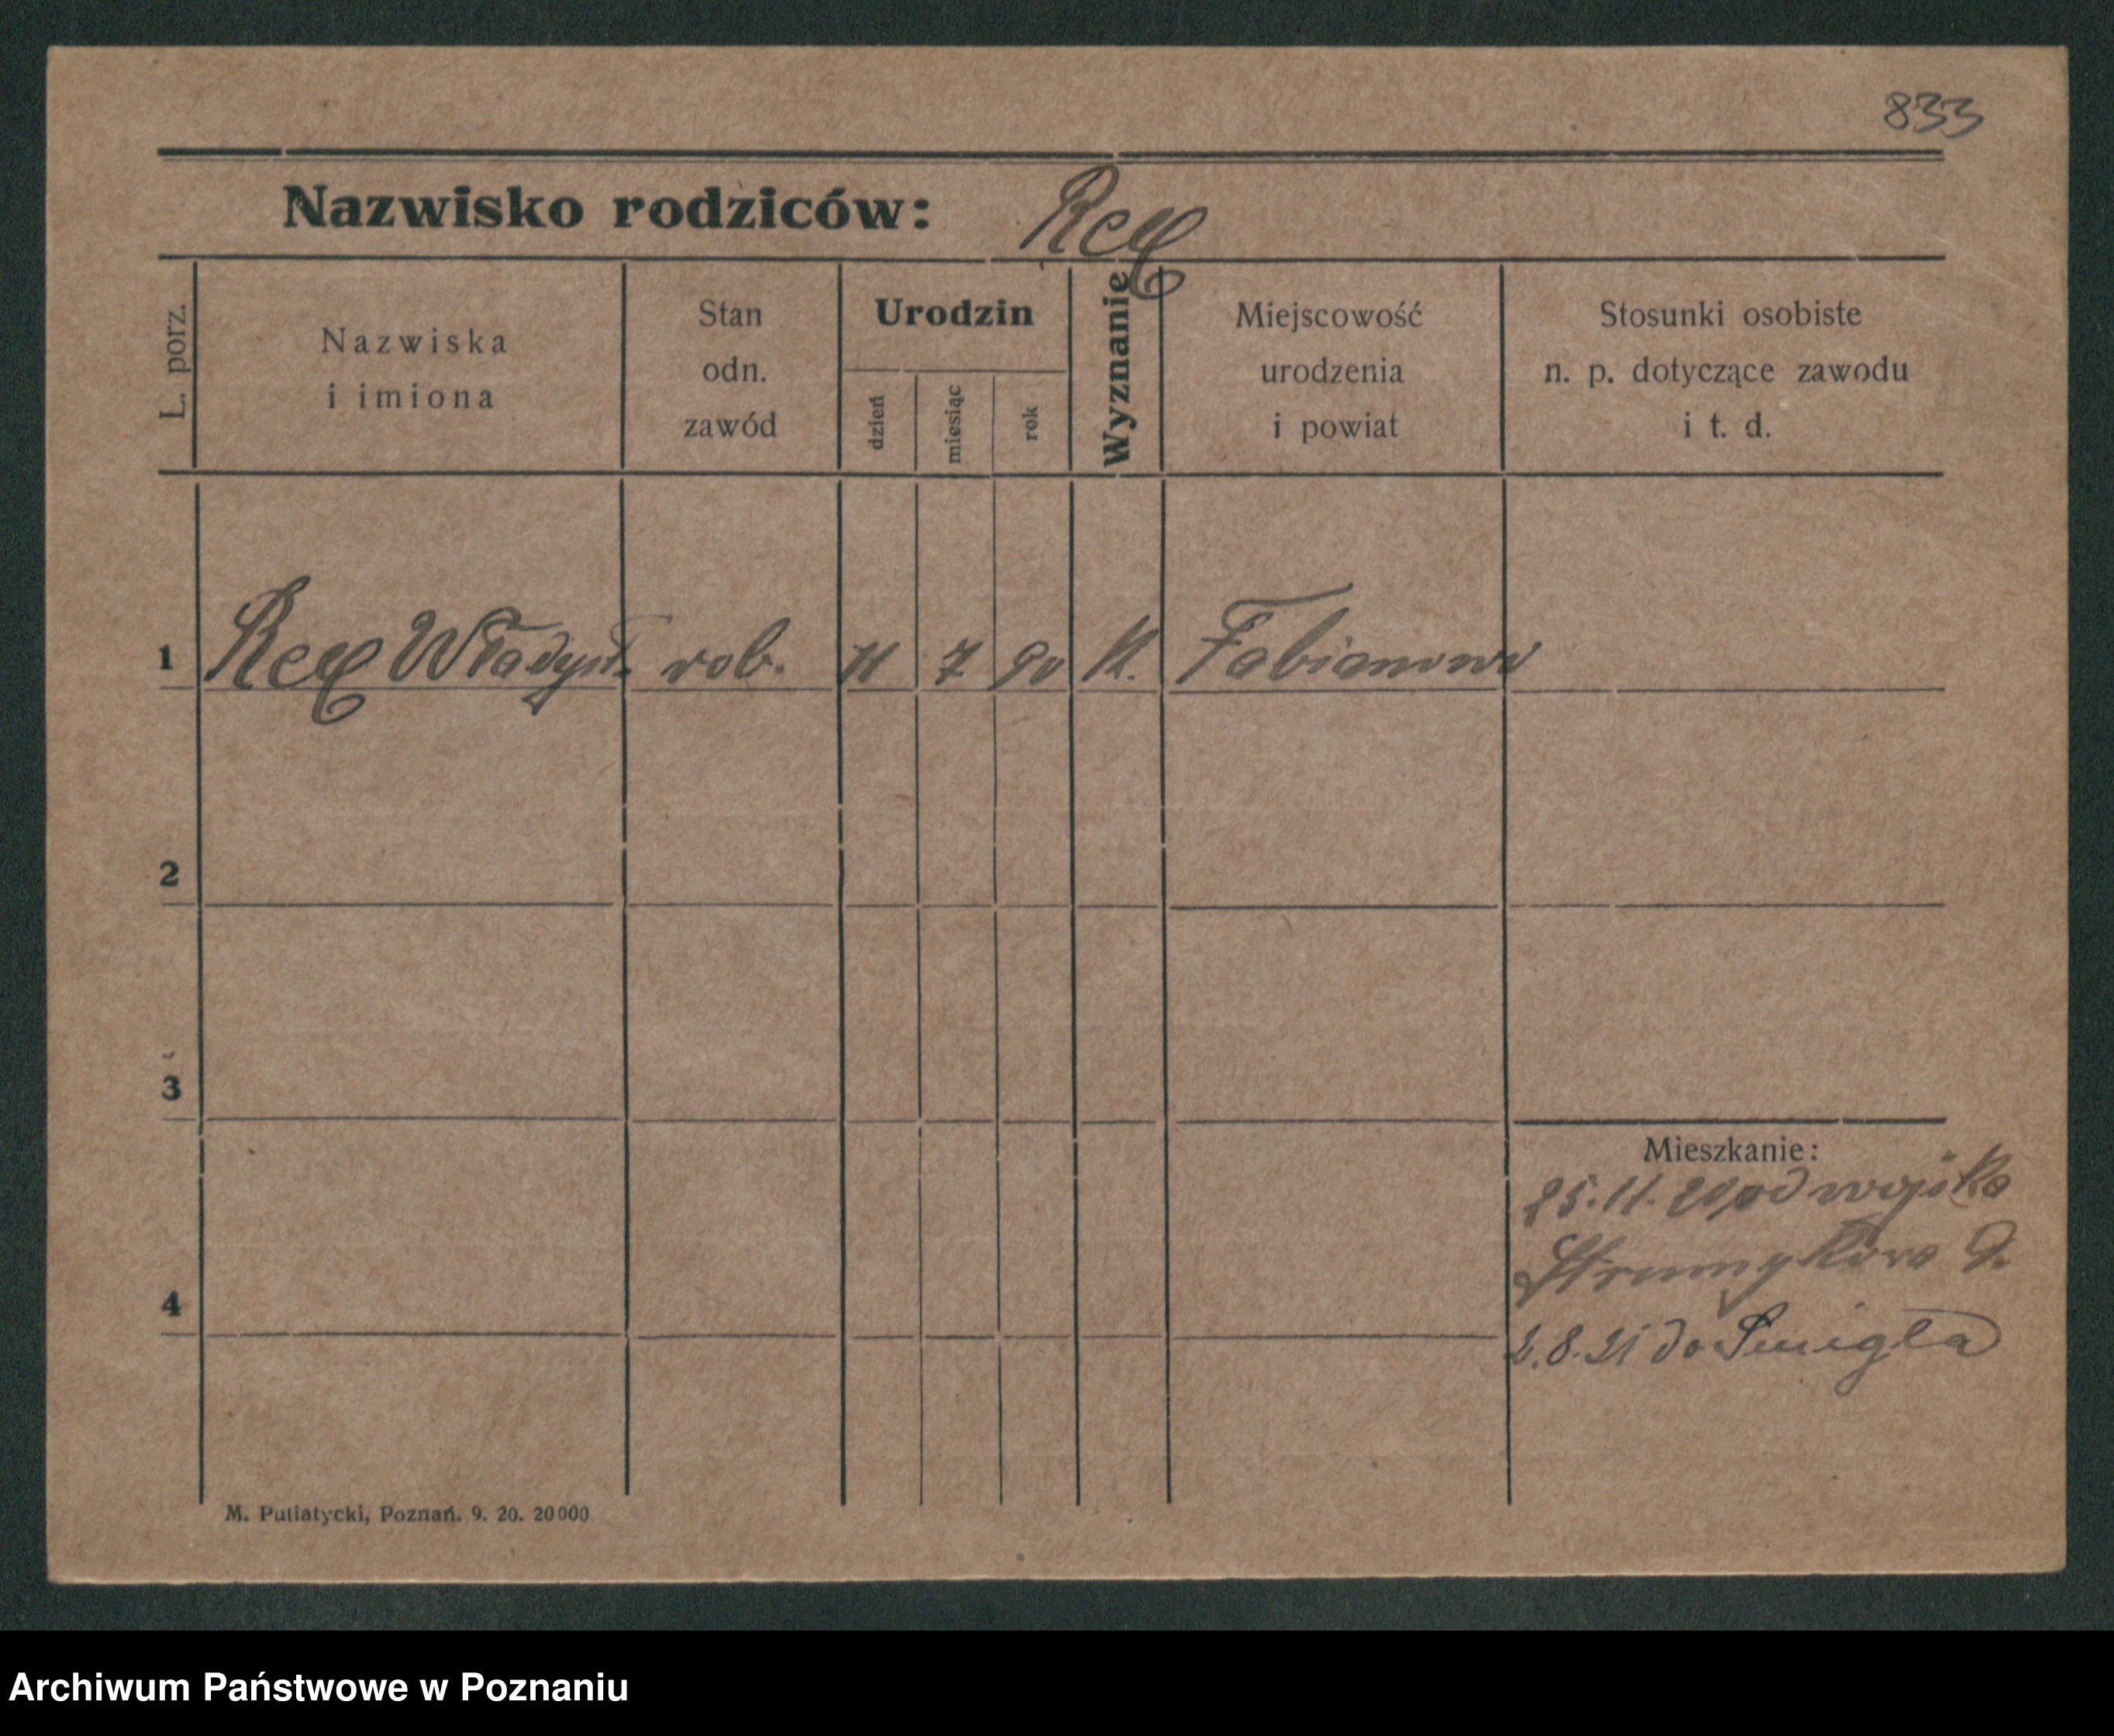 833
Nazwisko rodziców: Rex
L. porz.
Nazwiska
i imiona
Stan
odn.
zawód
Urodzin
dzień
miesiąc
rok
Wyznanie
Miejscowość
urodzenia
i powiat
Stosunki osobiste
n. p. dotyczące zawodu
i t. d.
1 Rex Władysł. rob. 11 7 90 K. Fabianowo
2
3
4
Mieszkanie:
25.11.20 od wojska
Strumykowa
2.8.21 do Śmigla
M. Putiatycki, Poznań. 9. 20. 20000
Archiwum Państwowe w Poznaniu